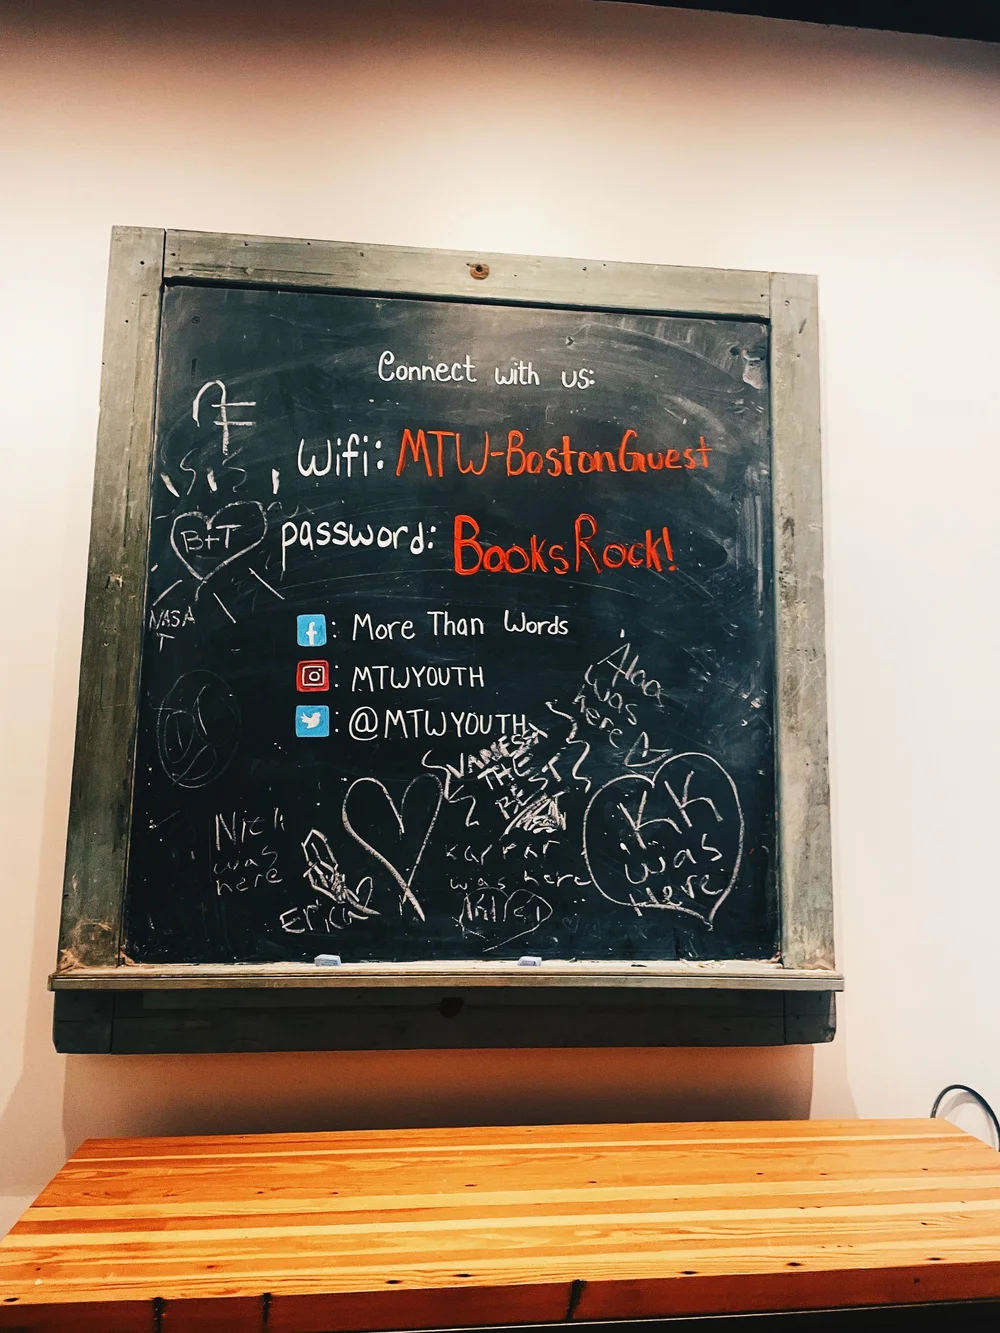 Connect with us:
Wifi: MTW-BostonGuest
password: BooksRock!
B+T
NASA
T
f: More Than Words
: MTWYOUTH
: @MTWYOUTH
Alaa
was
here
VANESSA
THE
BEST
KK
was
Here
was
here
Erica
was here